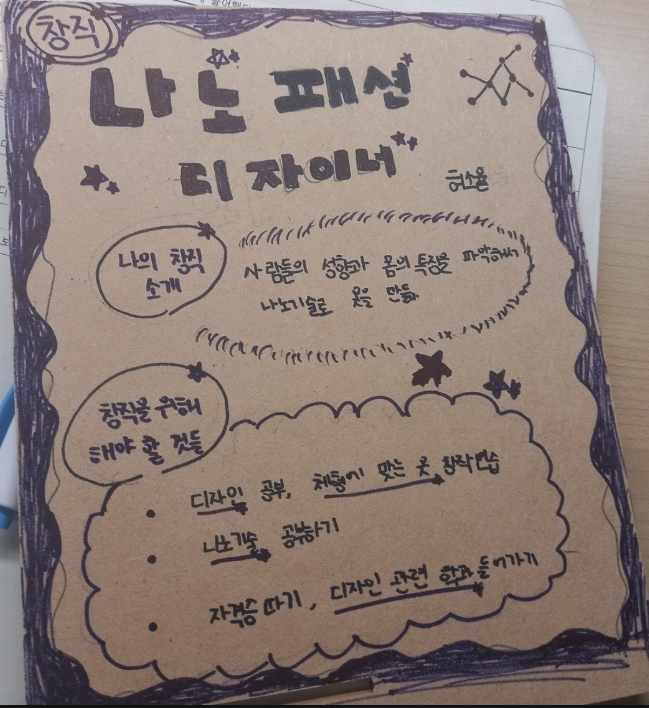 창직
나노 패션
디자이너
허소율
나의 창직
소개
사람들의 성향과 몸의 특징을 파악해서
나노기술로 옷을 만듦.
창직을 위해
해야 할 것들
• 디자인 공부, 체형에 맞는 옷 창작연습
• 나노기술 공부하기
• 자격증 따기, 디자인 관련 학과 들어가기